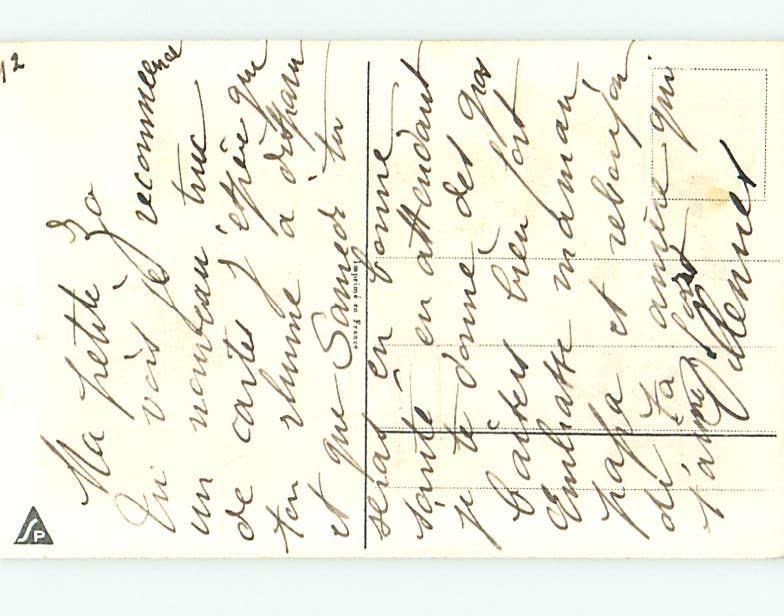 12
Ma petite Zo
Tu vois je recommence
un nouveau truc
de cartes j'espère que
ton rhume a disparu
et que Samedi tu
seras en bonne
santé en attendant
je te donne des gros
baisers bien fort
Embrasse maman
papa et rebonjour
de ta amie qui
t'aime fort
Imprimé en France
SP